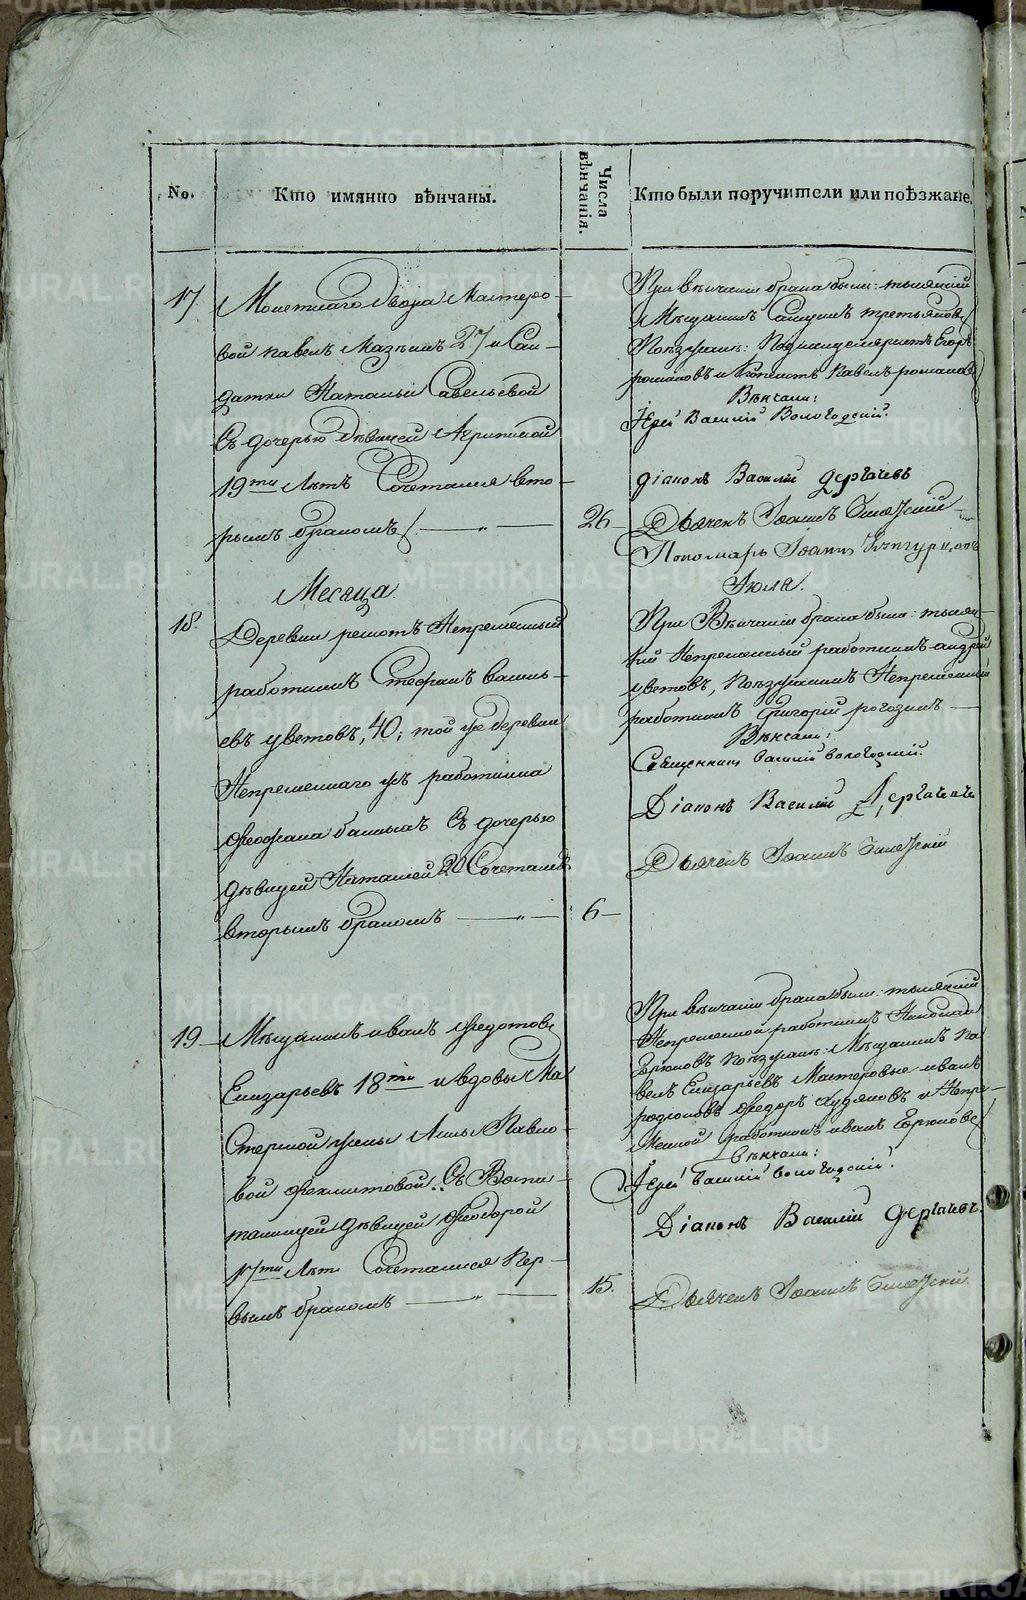 No.
Кто имянно вѣнчаны.
Числа вѣнчанія.
Кто были поручители или поѣзжане.
17.
Монетнаго двора Мастеро-
вой павелъ Мазѣинъ 27 и Сал-
датки Натальи Савельевой
Съ дочерью дѣвицей Агрипиной
19ти Лѣтъ Сочетался вто-
рымъ бракомъ
26
При вѣнчаніи брака были: тысяцкій
Мѣщанинъ третьяковъ
Поѣзжаны: Егоръ
романовъ и Копеистъ Павелъ романовъ
Вѣнчали:
Іерей Василій Вологодскій.
діаконъ Василій дергачевъ
Дьячекъ Іоаннъ
Пономарь Іоаннъ
Месяца
Іюля.
18.
Деревни решотъ Непременный
работникъ Стефанъ василь-
евъ цветовъ, 40; той же деревни
Непременнаго ужъ работника
Съ дочерью
дѣвицей Наташей 20 Сочетался
вторымъ бракомъ
6
При Вѣнчаніи брака были: тысяц-
кій Непременный работникъ андрей
цветовъ, поѣзжанинъ Непременный
работникъ Григорій рогозинъ
Вѣнчали:
Священникъ василій вологодскій.
Діаконъ Василій Дергачевъ
Дьячекъ Іоаннъ
19
Мѣщанинъ иванъ Федотовъ
Елизарьевъ 18ти и вдовы Ма
стерской жены Анны Павло-
вой Феклистовой. Съ Воспи-
танницей дѣвицей Феодорой
17ти Лѣтъ Сочетался Пер-
вымъ бракомъ
15.
При вѣнчаніи брака были: тысяцкій
Непременной работникъ Николай
поѣзжане: Мѣщанинъ Па
велъ Елизарьевъ Мастеровые иванъ
родионовъ Федоръ Худяковъ и Непре-
менной работникъ иванъ
Вѣнчали:
Іерей василій вологодскій.
Діаконъ Василій дергачевъ.
Дьячекъ Іоаннъ
METRIKI.GASO-URAL.RU